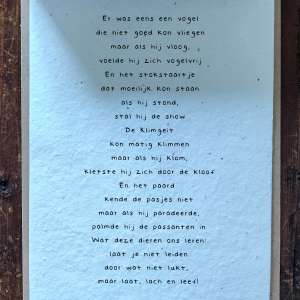 Er was eens een vogel
die niet goed kon vliegen
maar als hij vloog,
voelde hij zich vogelvrij
En het stokstaartje
dat moeilijk kon staan
als hij stond,
stal hij de show
De klimgeit
kon matig klimmen
maar als hij klom,
kletste hij zich door de kloof
En het paard
kende de pasjes niet
maar als hij paradeerde,
palmde hij de passanten in
Wat deze dieren ons leren:
laat je niet leiden
door wat niet lukt,
maar laat, lach en leef!